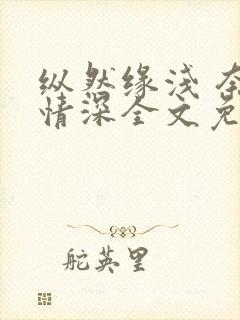 纵然缘浅 奈
情深全文免
舵英里